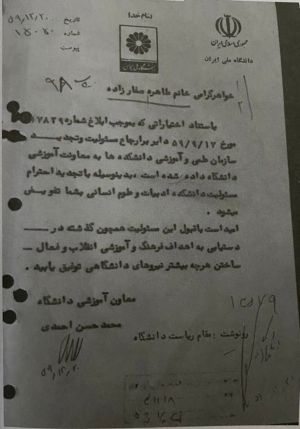 بنام خدا
تاریخ ۵۹،۱۲،۲۰
شماره ۱۵۰۲۰
پیوست
جمهوری اسلامی ایران
دانشگاه ملی ایران
خواهرگرامی خانم طاهره صفارزاده
باستناد اختیاراتی که بموجب ابلاغ شماره ۷۸۳۹
مورخ ۵۹/۹/۱۲ برابرارجاع مسئولیت وتجدید
سازمان علمی و آموزشی دانشکده ها به معاونت آموزشی
دانشگاه داده شده است، بدینوسیله باتجدید احترام
مسئولیت دانشکده ادبیات و علوم انسانی بشما تفویض
میشود.
امیداست باقبول این مسئولیت همچون گذشته در
دستیابی به اهداف فرهنگ و آموزشی انقلاب و فعال
ساختن هرچه بیشتر نیروهای دانشگاهی توفیق یابید.
معاون آموزشی دانشگاه
محمد حسن احمدی
۵۹،۱۲،۲۰
رونوشت: مقام ریاست دانشگاه